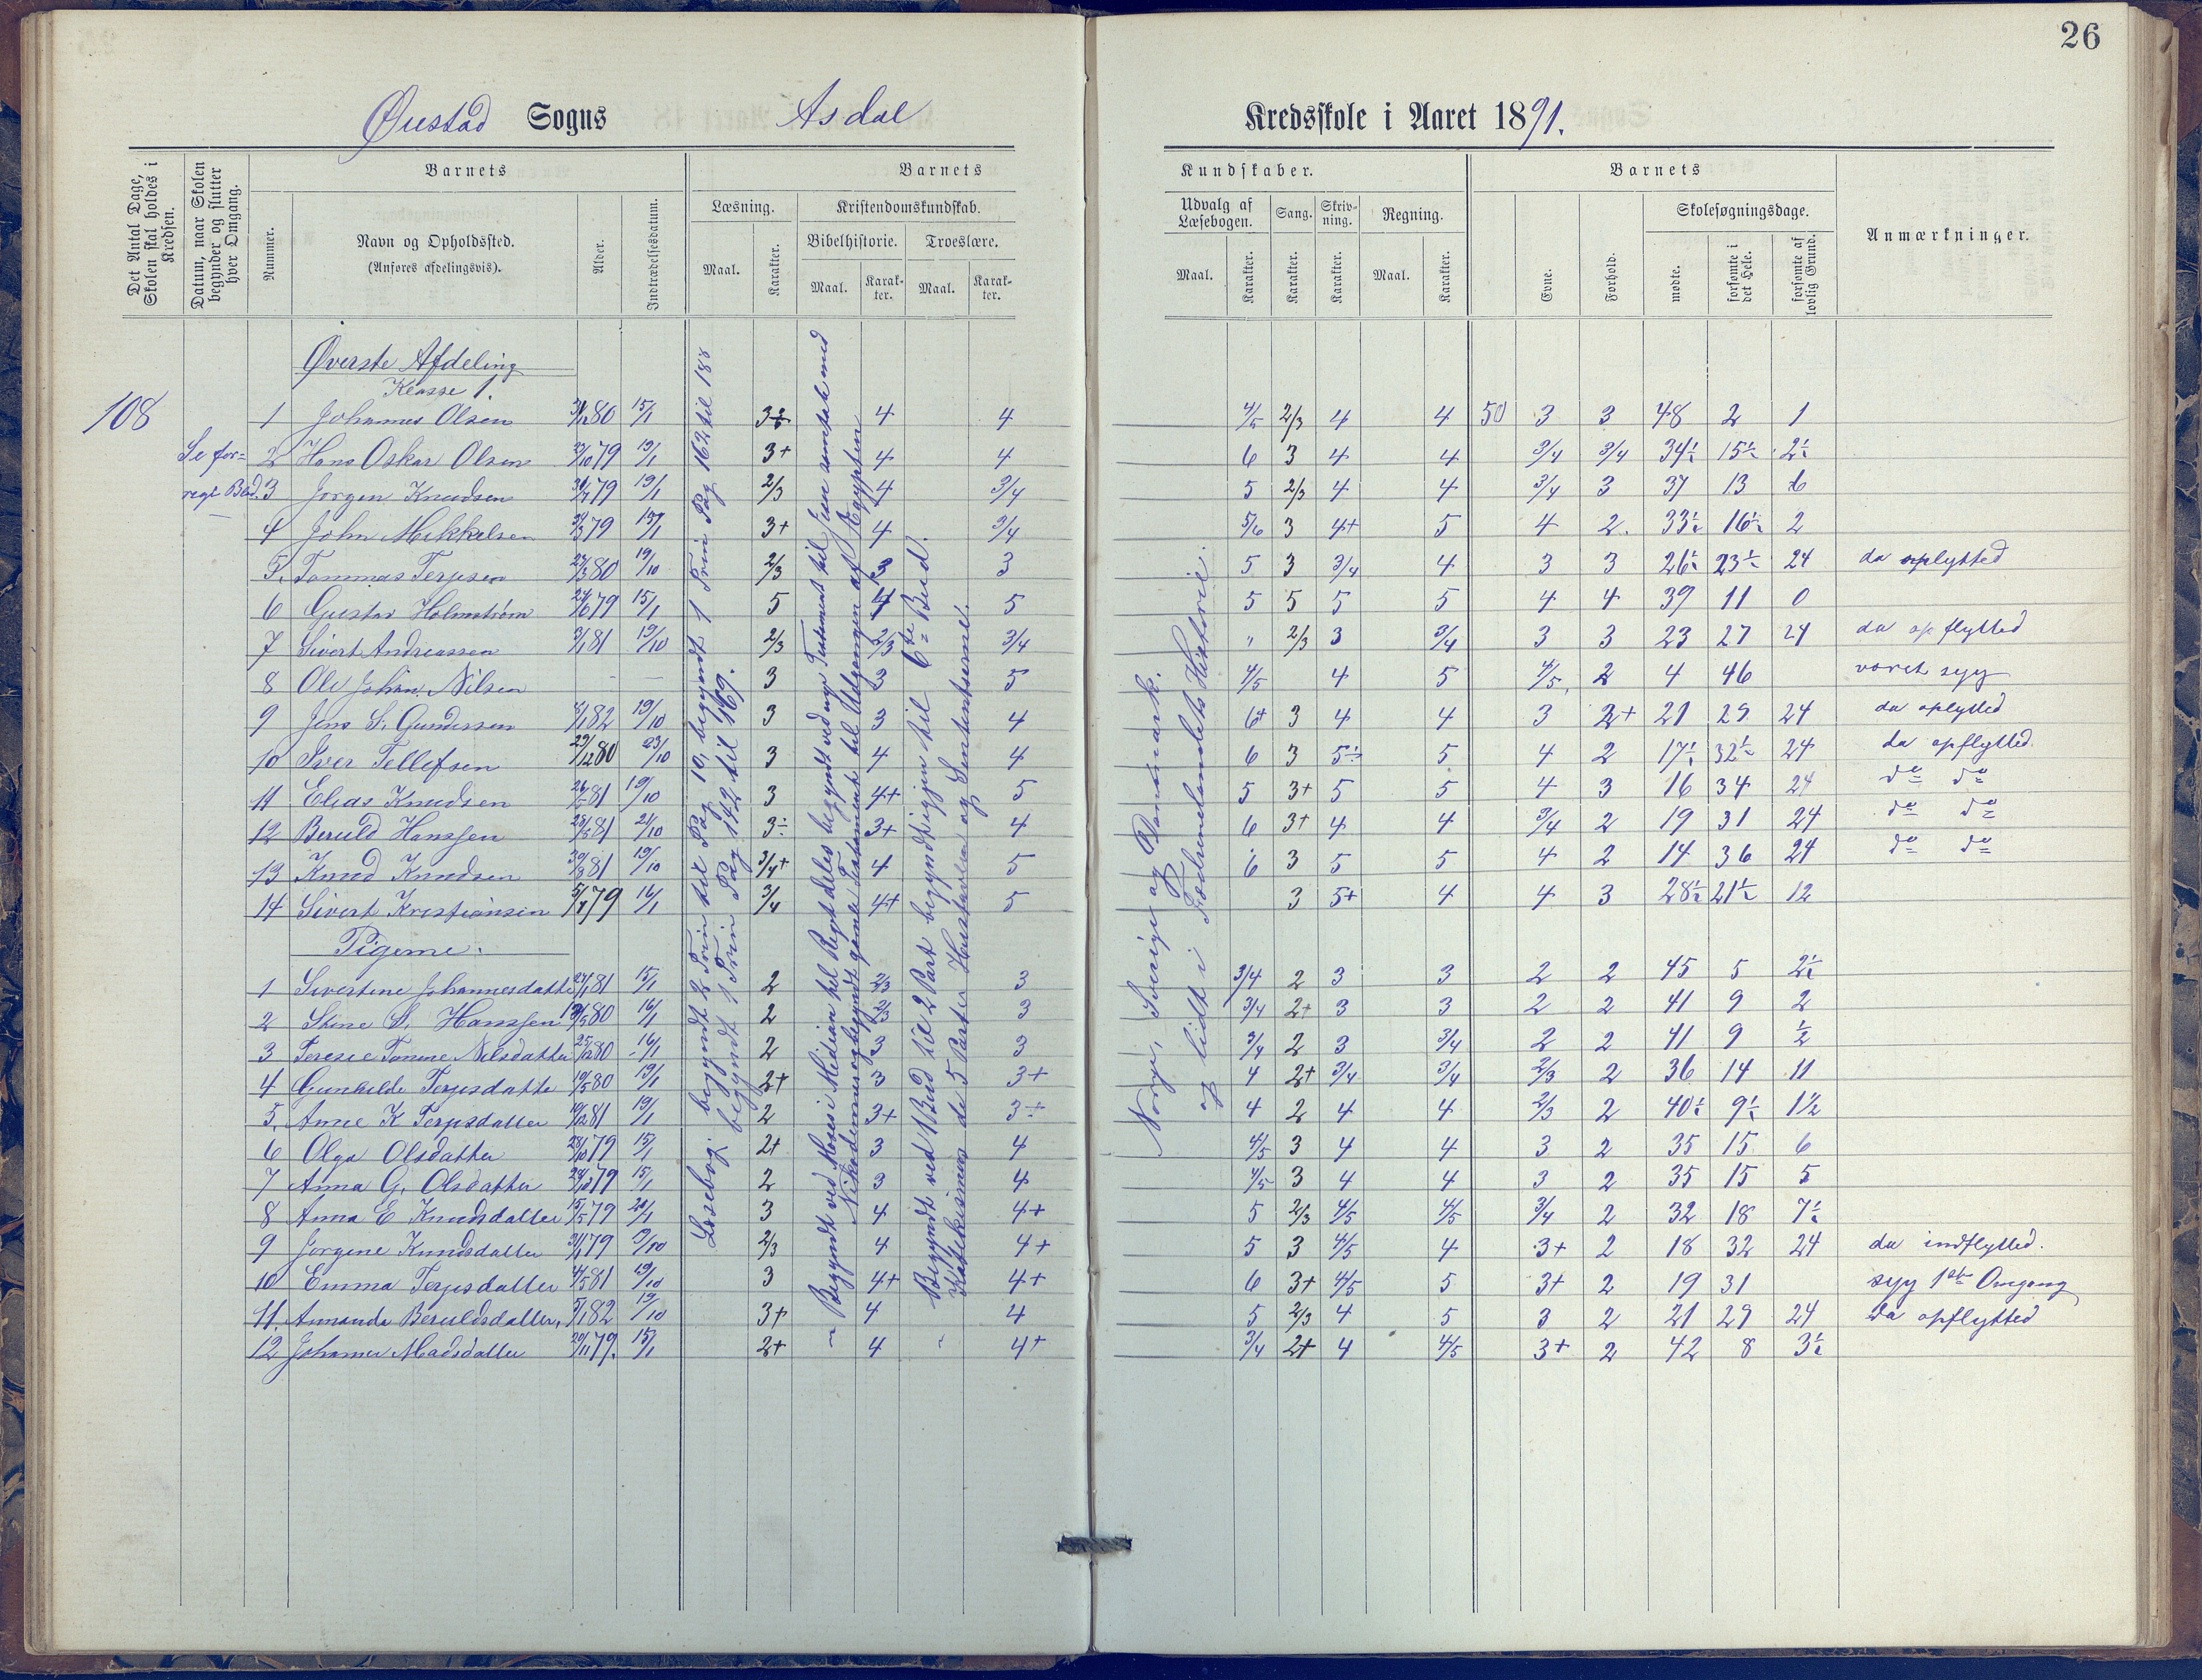 26
Øiestad Sogns Asdal Kredsskole i Aaret 1891.
Det Antal Dage, Skolen skal holdes i Kredsen.
Datum, naar Skolen begynder og slutter hver Omgang.
Nummer.
Barnets
Navn og Opholdssted.
(Anføres afdelingsvis).
Alder.
Indtrædelsesdatum.
Barnets
Læsning.
Maal.
Karakter.
Kristendomskundskab.
Bibelhistorie.
Maal.
Karakter.
Troeslære.
Maal.
Karakter.
Kundskaber.
Udvalg af Læsebogen.
Maal.
Karakter.
Sang.
Karakter.
Skrivning.
Karakter.
Regning.
Maal.
Karakter.
Barnets
Evne.
Forhold.
Skolesøgningsdage.
mødte.
forsømte i det Hele.
forsømte af lovlig Grund.
Anmærkninger.
Øverste Afdeling
Klasse 1.
108
Se for=
rege Blad.
1 Johannes Olsen 80 15/1 4 4 4/5 2/3 4 4 50 3 3 48 2 1
2 Hans Oskar Olsen 79 19/1 3+ 4 4 6 3 4 4 3/4 3/4 34½ 15½ 2½
3 Jørgen Knudsen 79 19/1 2/3 4 3/4 5 2/3 4 4 3/4 3 37 13 6
4 John Mikkelsen 79 3+ 4 3/4 5/6 3 4+ 5 4 2 33½ 16½ 2
5. Tommas Terjesen 80 19/10 2/3 3 3 5 3 3/4 4 3 3 26½ 23½ 24 da oplytted
6 Gustav Holmstrøm 79 15/1 5 4 5 5 5 5 5 4 4 39 11 0
7 Sivert Andreassen 81 19/10 2/3 2/3 3/4 " 2/3 3 3/4 3 3 23 27 24 da opflytted
8 Ole Johan Nilsen — — 3 3 5 4/5 4 5 4/5 2 4 46 været syg
9 Jens S. Gundersen 82 19/10 3 3 4 6+ 3 4 4 3 2+ 21 29 24 da oplytted
10 Iver Tellefsen 29/12 80 23/10 3 4 4 6 3 5÷ 5 4 2 17½ 32½ 24 da opflytted.
11 Elias Knudsen 81 19/10 3 4+ 5 5 3+ 5 5 4 3 16 34 24 do do
12 Beruld Hanssen 81 21/10 3÷ 3+ 4 6 3+ 4 4 3/4 2 19 31 24 do do
13 Knud Knudsen 81 19/10 3/4+ 4 5 6 3 5 5 4 2 14 36 24 do do
14 Sivert Kristiansen 79 16/1 3/4 4+ 5 3 5+ 4 4 3 28½ 21½ 12
Pigerne:
1 Sivertine Johannesdatter 81 15/1 2 2/3 3 3/4 2 3 3 2 2 45 5 2½
2 Stine S. Hanssen 80 16/1 2 3 3/4 2+ 3 3 2 2 41 9 2
3 Terese Tomine Nilsdatter 80 16/1 2 3 3 3/4 2 3 3/4 2 2 41 9 ½
4 Gunhilde Terjesdatter 80 19/1 2+ 3 3+ 4 2+ 3/4 3/4 2/3 2 36 14 11
5. Anne K Terjesdatter 81 19/1 2 3+ 3÷ 4 2 4 4 2/3 2 40½ 9½ 1½
6 Olga Olsdatter 79 15/1 2+ 3 4 4/5 3 4 4 3 2 35 15 6
7 Anna G. Olsdatter 79 15/1 2 3 4 4/5 3 4 4 3 2 35 15 5
8 Anna E Knudsdatter 79 3 4 4+ 5 2/3 4/5 4/5 3/4 2 32 18 7½
9 Jørgine Knudsdatter 79 2/3 4 4+ 5 3 4/5 4 3+ 2 18 32 24 da indflytted.
10 Emma Terjesdatter 81 19/10 3 4+ 4+ 6 3+ 4/5 5 3+ 2 19 31 syg 1ste Omgang
11. Amanda Beruldsdatter, 82 19/10 3+ 4 4 5 2/3 4 5 3 2 21 29 24 da opflytted
12 Johanne Madsdatter 79. 15/1 2+ 4 4+ 3/4 2+ 4 4/5 3+ 2 42 8 3½
Læsebog: begyndt 2 Trin til Pag 10, begyndt 1 Trin Pag 162 til 188
begyndt 1 Trin Pag 142 til 169.
Begyndt ved Moses i Midian til Rigets deles begyndt ved nye Testament til Jesu samtale med
Nikodemus og begyndt gamle Testamente til Udgangen af Ægypten
Begyndt ved 1 Bud til 2 Part begyndt igjen til 6te Bud.
Katekismen de 5 Parter Hustavlen og Sententserne.
Norge, Sverige og Danmark.
og lidt i Fædrenelandets Historie.